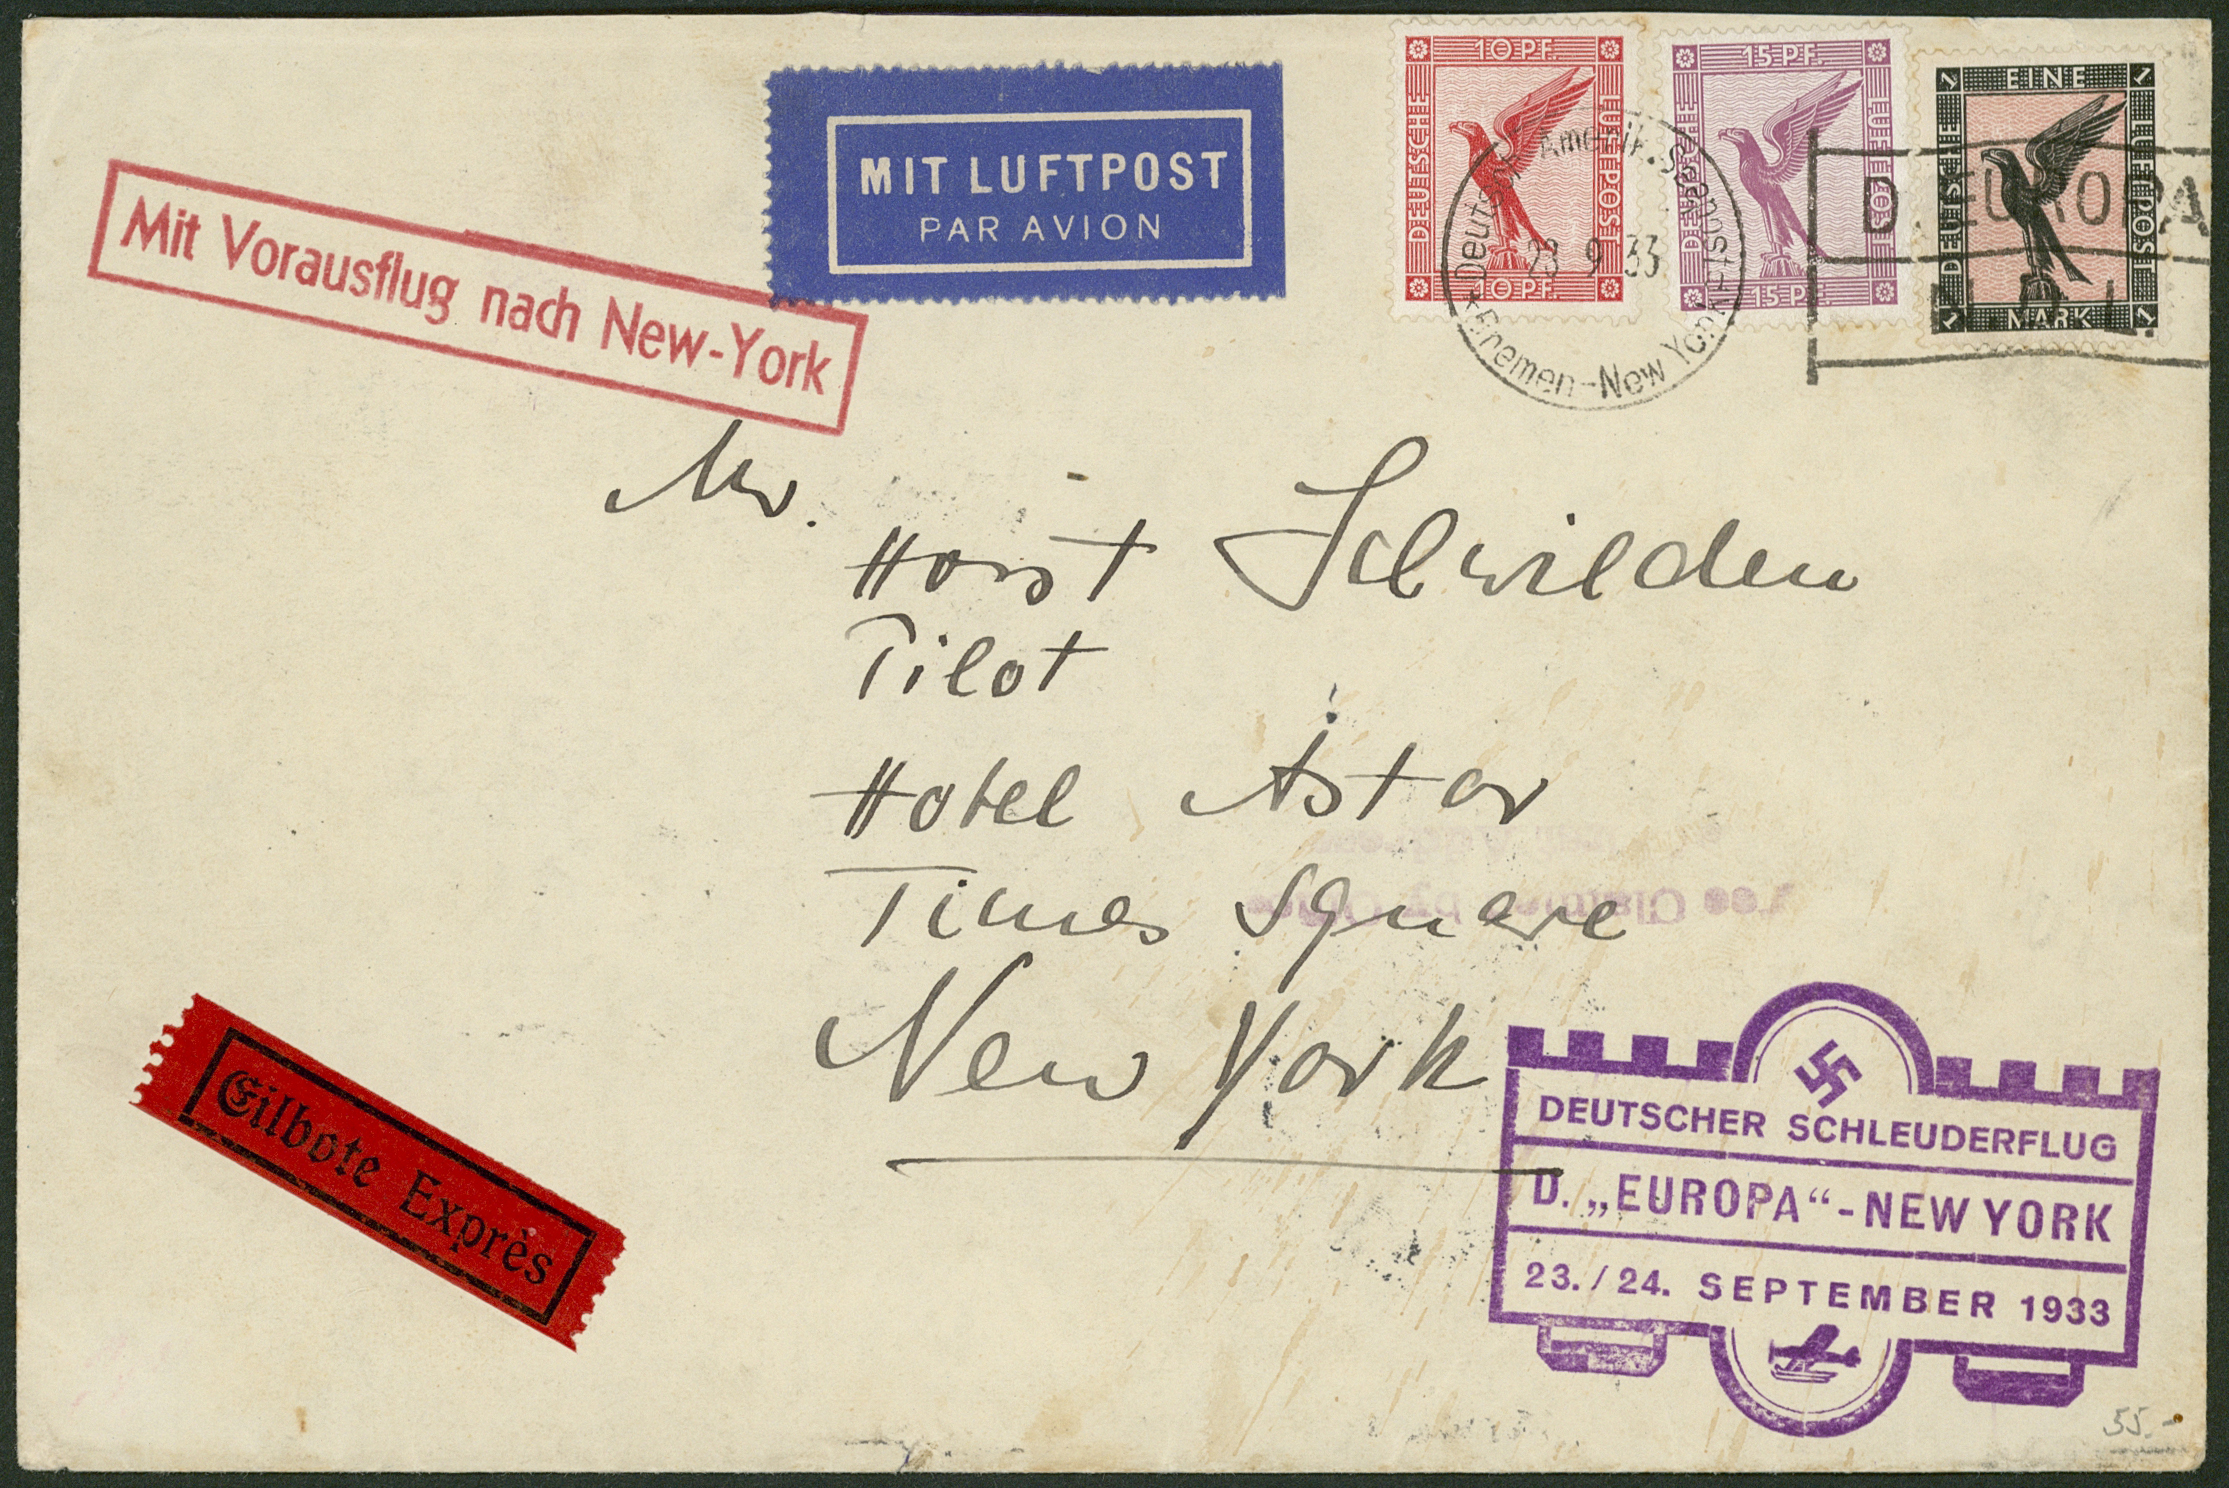 10 PF.
DEUTSCHE
LUFTPOST
10 PF.
15 PF.
DEUTSCHE
LUFTPOST
15 PF.
1 EINE 1
DEUTSCHE
LUFTPOST
1 MARK 1
MIT LUFTPOST
PAR AVION
Mit Vorausflug nach New-York
Deutsch Amerik. Seepost
23 9 33
Bremen-New York
D. EUROPA
Mr.
Horst Schwilden
Pilot
Hotel Astor
Times Square
New York
Eilbote Exprès
DEUTSCHER SCHLEUDERFLUG
D. „EUROPA“-NEW YORK
23./24. SEPTEMBER 1933
55.-